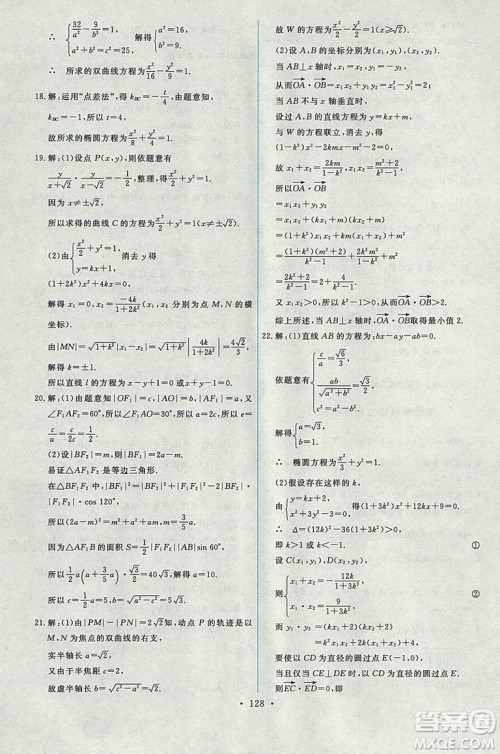 ∴ {32/a²-9/b²=1, a²+b²=25
∴ 所求的双曲线方程为x²/16-y²/9=1.
18.解:运用“点差法”,得 k_BC=-t/4.
k_BC=-1,所以 t=4,
故所求的椭圆方程为x²/2+y²/4=1.
19.解:(1)设点 P(x,y),则依题意有
y/(x-√2)·y/(x+√2)=-1/2,整理,得x²/2+y²=1.
因为 x≠±√2,
所以求得的曲线 C 的方程为x²/2+y²=1(x≠±√2).
(2)由{x²/2+y²=1, y=kx+1,消去 y 得
(1+2k²)x²+4kx=0.
解得 x₁=0,x₂=-4k/(1+2k²)(x₁,x₂ 分别为点 M,N 的横
坐标).
由|MN|=√(1+k²)|x₁-x₂|=√(1+k²)|4k/(1+2k²)|=4√2/3,
解得 k=±1.
所以直线 l 的方程为 x-y+1=0 或 x+y-1=0.
20.解:(1)由题意知,|OF₁|=|OF₂|=c,|OA|=b,
又∠F₁AF₂=60°,∠F₁AO=30°,所以 a=2c,所以 e=
c/a=1/2.
(2)设|BF₂|=m,则|BF₁|=2a-m.
易证△AF₁F₂ 是等边三角形.
在△BF₁F₂ 中,|BF₁|²=|BF₂|²+|F₁F₂|²-2|BF₂|
|F₁F₂|·cos 120°,
所以(2a-m)²=m²+a²+am,所以 m=3/5a.
因为△AF₁B 的面积 S=1/2|F₁F₂||AB|sin 60°,
所以1/2·a·(a+3/5a)·√3/2=40√3,
所以 a=10,所以 c=5,b=5√3.
21.解:(1)由|PM|-|PN|=2√2知动点 P 的轨迹是以
M,N 为焦点的双曲线的右支,
实半轴长 a=√2,
又由半焦距 c=2,
故虚半轴长 b=√(c²-a²)=√2,
故 W 的方程为x²/2-y²/2=1(x≥√2).
(2)设 A,B 的坐标分别为(x₁,y₁),(x₂,y₂).
当 AB⊥x 轴时,x₁=x₂,y₁=-y₂,
所以OA·OB=x₁x₂+y₁y₂=x₁²-y₁²=2.
当 AB 与 x 轴不垂直时,
设过 A,B 的直线方程为 y=kx+m,
与 W 的方程联立,消去 y 得
(1-k²)x²-2kmx-m²-2=0,
故 x₁+x₂=2km/(1-k²),x₁x₂=(m²+2)/(k²-1),
所以OA·OB
=x₁x₂+y₁y₂
=x₁x₂+(kx₁+m)(kx₂+m)
=(1+k²)x₁x₂+km(x₁+x₂)+m²
=(1+k²)(m²+2)/(k²-1)+2k²m²/(1-k²)+m²
=(2k²+2)/(k²-1)
=2+4/(k²-1).
又 x₁x₂>0,所以 k²-1>0,所以OA·OB>2.
综上所述,当 AB⊥x 轴时,OA·OB取得最小值 2.
22.解:(1)直线 AB 的方程为:bx-ay-ab=0.
依题意有{c/a=√6/3, ab/√(a²+b²)=√3/2.
解得{a=√3, b=1.
∴ 椭圆方程为x²/3+y²=1.
(2)假设存在这样的 k,
由{y=kx+2, x²+3y²-3=0得(1+3k²)x²+12kx+9=0.
∴ Δ=(12k)²-36(1+3k²)>0,
即 k>1 或 k<-1. ①
设 C(x₁,y₁),D(x₂,y₂),
则{x₁+x₂=-12k/(1+3k²), x₁x₂=9/(1+3k²). ②
而 y₁·y₂=(kx₁+2)(kx₂+2)
=k²x₁x₂+2k(x₁+x₂)+4
要使以 CD 为直径的圆过点 E(-1,0),
以 CD 为直径的圆过点 E(-1,0),当且仅当 CE⊥DE
时,则EC·ED=0,即
· 128 ·
答案圈
MXQE.COM